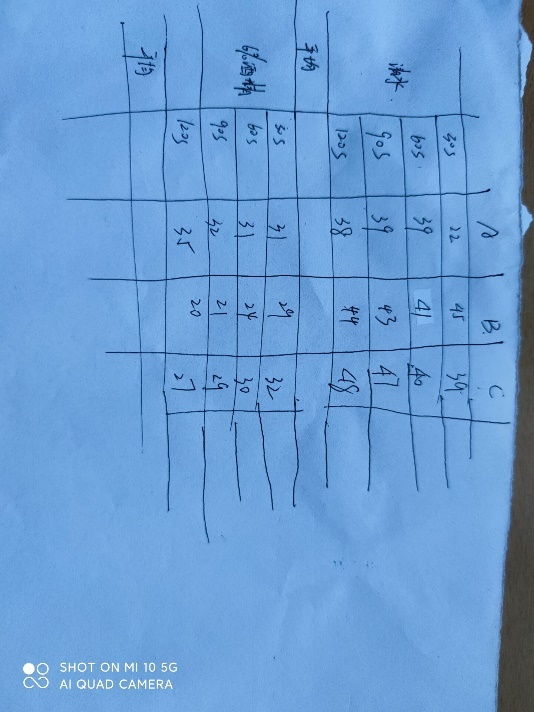 A B. C
清水 30s 22 45 39
60s. 39 41 40
90s 39 43 47
120s 38 44 48
平均
酒精 30s 31 29 32
60s 31 30
90s 32 21 29
120s 35 20 27
平均
SHOT ON MI 10 5G
AI QUAD CAMERA